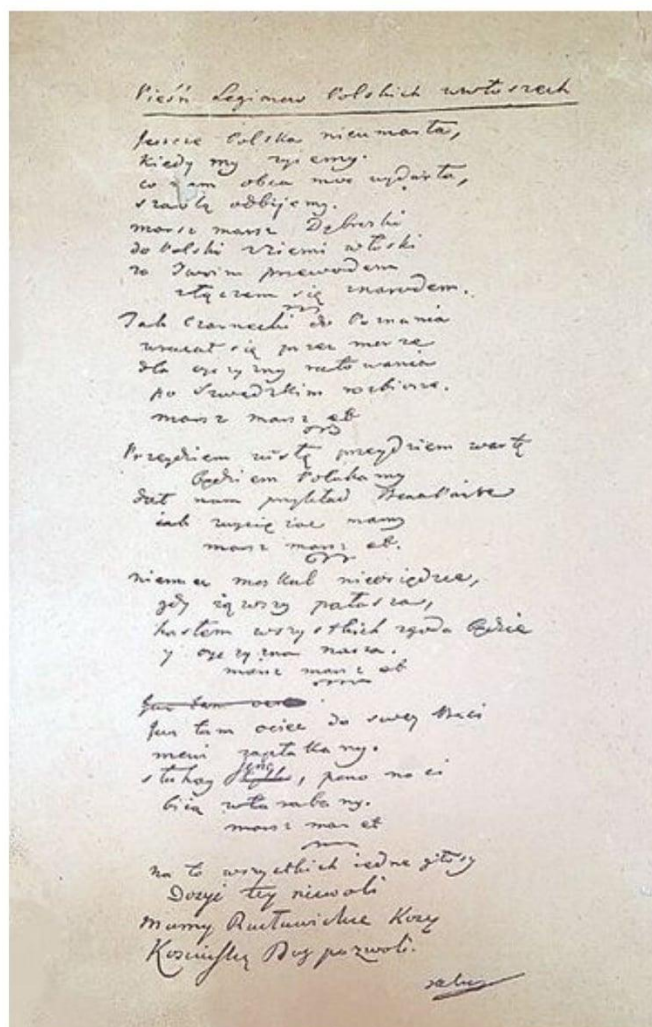 Pieśń Legionow Polskich wewłoszech
Jeszcze Polska nieumarła,
kiedy my żyiemy.
co nam obca moc wydarła,
szablą odbijemy.
marsz marsz Dąbroski
do Polski zziemi włoski
za Twoim przewodem
złączem się znarodem.
Jak Czarnecki do Poznania
wracał się przez morze
dla oyczyzny ratowania
po Szwedzkim rozbiorze.
marsz marsz et
Przeydziem wisłę przeydziem wartę
będziem Polakamy
dał nam przykład Bonaparte
iak zwyciężac mamy
marsz marsz et.
niemiec moskal nieosiędzie,
gdy iąwszy pałasza,
hasłem wszystkich zgoda będzie
y oyczyzna nasza.
marsz marsz et
Juz tam
Juz tam ociec do swey Basi
mowi zapłakany.
słuchay ieno, pono nasi
biią wtarabany.
marsz mar et
na to wszystkich iedne głosy
Dosyć tey niewoli
Mamy Racławickie Kosy
Kosciuszkę Bog pozwoli.